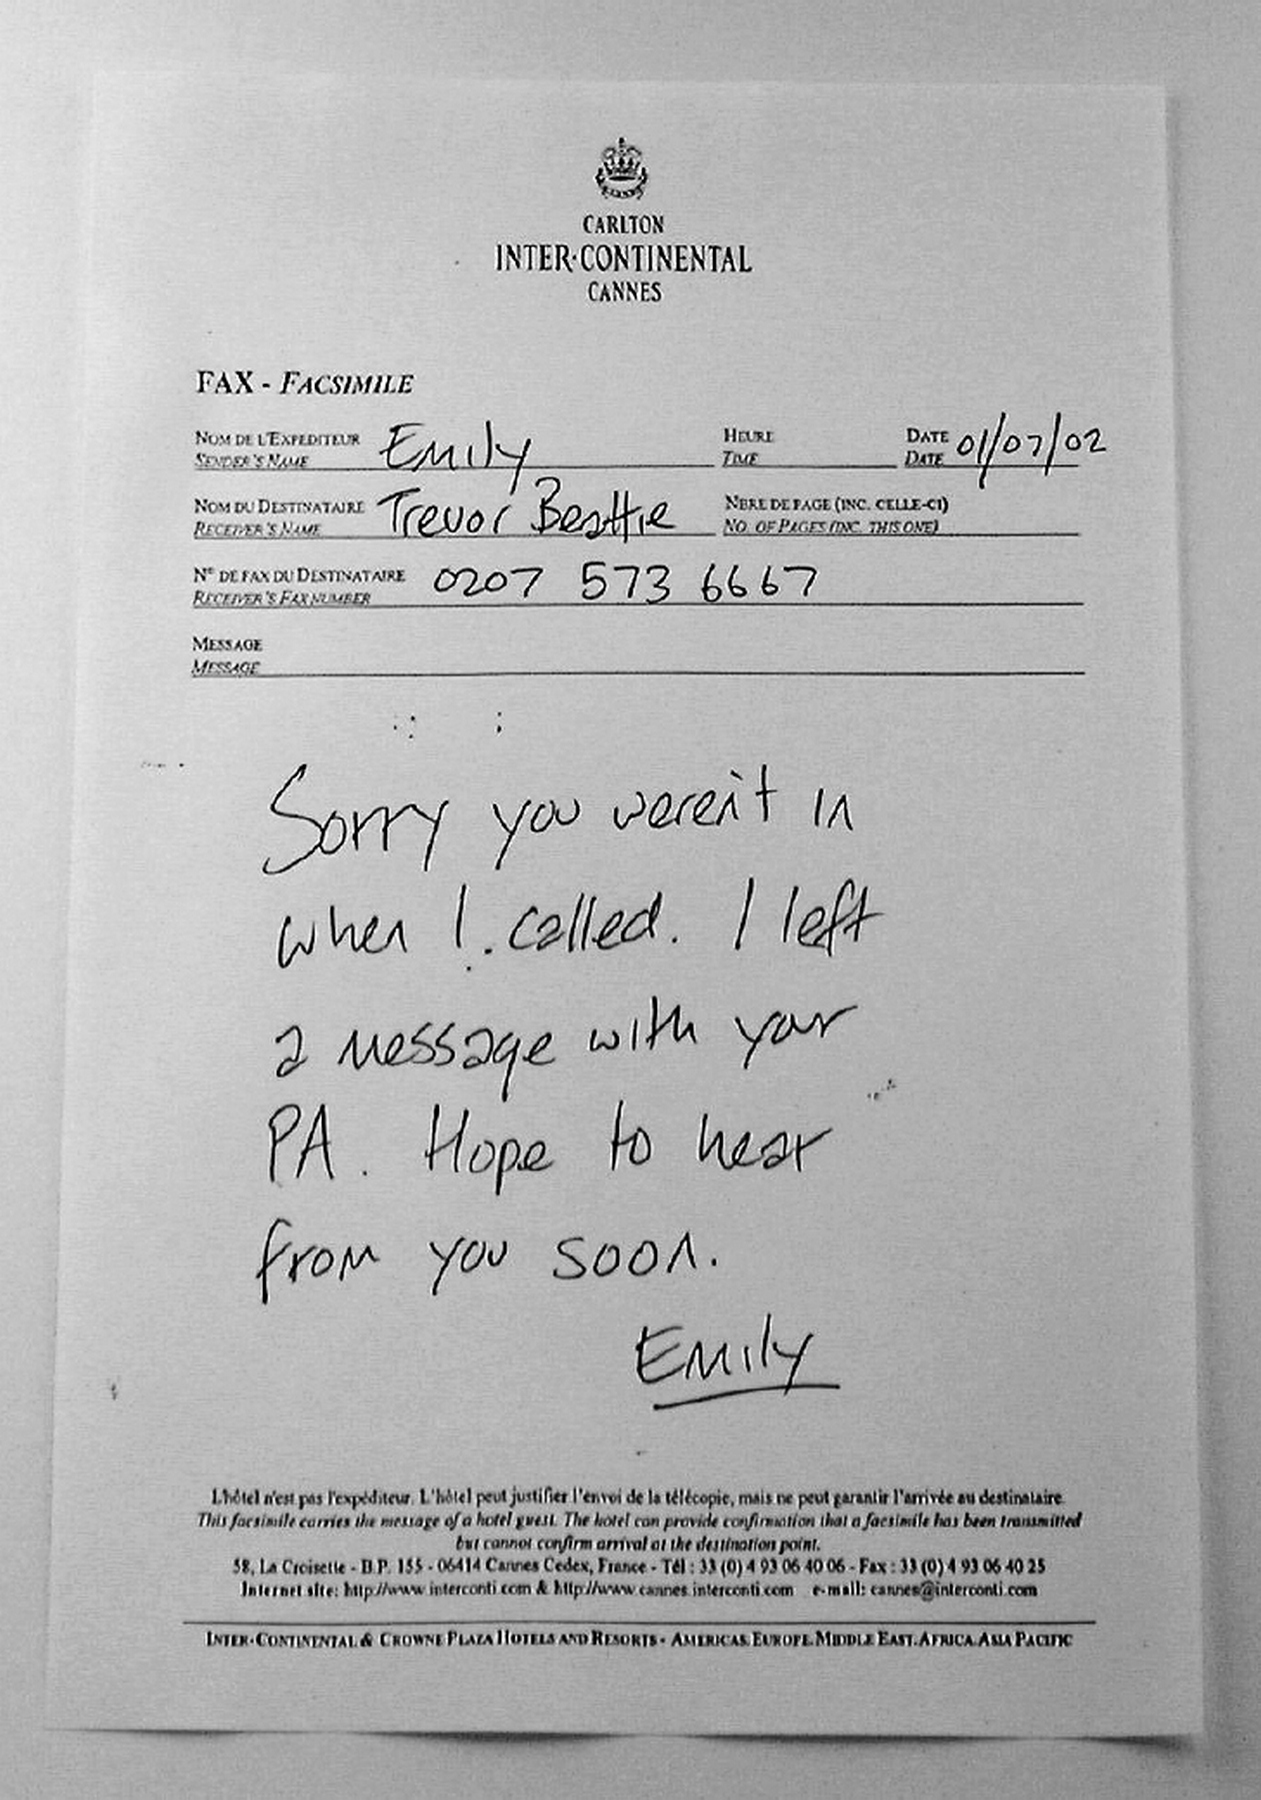 CARLTON
INTER·CONTINENTAL
CANNES
FAX - FACSIMILE
NOM DE L'EXPEDITEUR
SENDER'S NAME
Emily
HEURE
TIME
DATE
DATE
01/07/02
NOM DU DESTINATAIRE
RECEIVER'S NAME
Trevor Beattie
NBRE DE PAGE (INC. CELLE-CI)
NO. OF PAGES (INC. THIS ONE)
N° DE FAX DU DESTINATAIRE
RECEIVER'S FAX NUMBER
0207 573 6667
MESSAGE
MESSAGE
Sorry you weren't in
when I called. I left
a message with your
PA. Hope to hear
from you soon.
Emily
L'hôtel n'est pas l'expéditeur. L'hôtel peut justifier l'envoi de la télécopie, mais ne peut garantir l'arrivée au destinataire.
This facsimile carries the message of a hotel guest. The hotel can provide confirmation that a facsimile has been transmitted
but cannot confirm arrival at the destination point.
58, La Croisette - B.P. 155 - 06414 Cannes Cedex, France - Tél : 33 (0) 4 93 06 40 06 - Fax : 33 (0) 4 93 06 40 25
Internet site: http://www.interconti.com & http://www.cannes.interconti.com e-mail: cannes@interconti.com
INTER·CONTINENTAL & CROWNE PLAZA HOTELS AND RESORTS · AMERICAS.EUROPE.MIDDLE EAST.AFRICA.ASIA PACIFIC